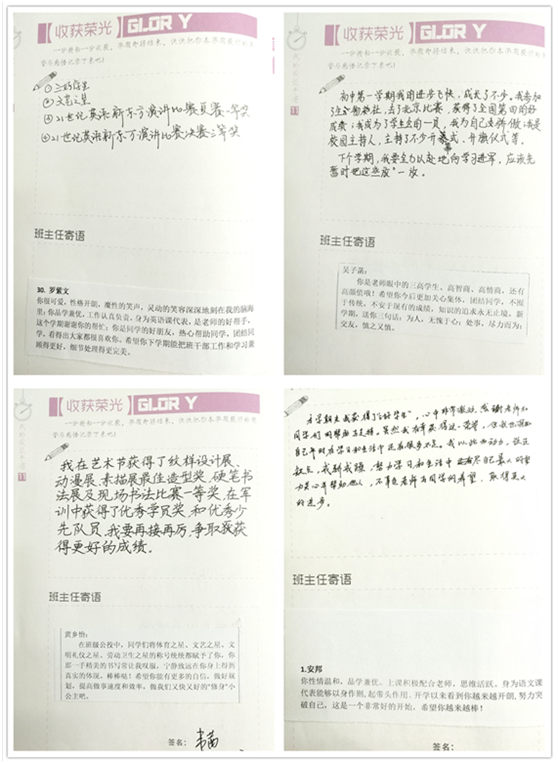 【收获荣光】GLORY
①三好学生
②文艺之星
③21世纪英语新东方演讲比赛复赛一等奖
④21世纪英语新东方演讲比赛决赛三等奖
班主任寄语
30. 罗紫文
你很可爱,性格开朗,魔性的笑声,灵动的笑容深深地刻在我的脑海
里;你品学兼优,工作认真负责,身为英语课代表,是老师的好帮手,
这个学期谢谢你的帮忙;你是同学的好朋友,热心帮助同学,团结同
学,看得出大家都很喜欢你。希望你下学期能把班干部工作和学习兼
顾得更好,细节处理得更完美。
【收获荣光】GLORY
初中第一学期我的进步飞快,成长了不少。我参加
去了北京比赛,获得了全国第四的好
成绩;我成为了学生会的一员,我为自己感到骄傲;我是
校园主持人,主持了不少开幕式、升旗仪式等。
下个学期,我要全力以赴地向学习进军,应该先
暂时把这些放一放。
班主任寄语
吴子潇:
你是老师眼中的三高学生、高智商、高情商,还有
高颜值哦!希望你今后更加关心集体,团结同学,不囿
于传统,不安于现有的成绩,知识的追求永无止境。新
学期,送你三句话:为人,无愧于心;处事,尽力而为;
交友,慎之又慎。
【收获荣光】GLORY
我在艺术节获得了纹样设计展、
动漫展、素描展最佳造型奖,硬笔书
法展及现场书法比赛一等奖,在军
训中获得了优秀学员奖和优秀少
先队员。我要再接再厉,争取获获
得更好的成绩。
班主任寄语
黄乡怡:
在班级公投中,同学们将体育之星、文艺之星、文
明礼仪之星、劳动卫生之星的称号统统都赋予了你,你
那一手精美的书写常让我叹服,宁静致远在你身上得到
真实的体现,棒棒哒!希望你能有更多的自信,做好规
划,提高做事速度和效率,做我们又快又好的“修身”小
公主吧。
签名:
本学期里我获得了“三好学生”,心中非常激动,感谢老师和
同学们的帮助与支持。虽然我有幸获得这一荣誉,但我也深知
自己平时在学习和生活中还有很多不足。我以此为动力,
缺点,努力学习和生活中尽自己最大的努
力关心和帮助他人,不辜负老师与同学的希望,取得更大
的进步。
班主任寄语
1.安邦
你性情温和,品学兼优。上课积极配合老师,思维活跃。身为语文课
代表能够以身作则,起带头作用。开学以来看到你越来越开朗,努力突
破自己,这是一个非常好的开始。希望你越来越棒!
签名: